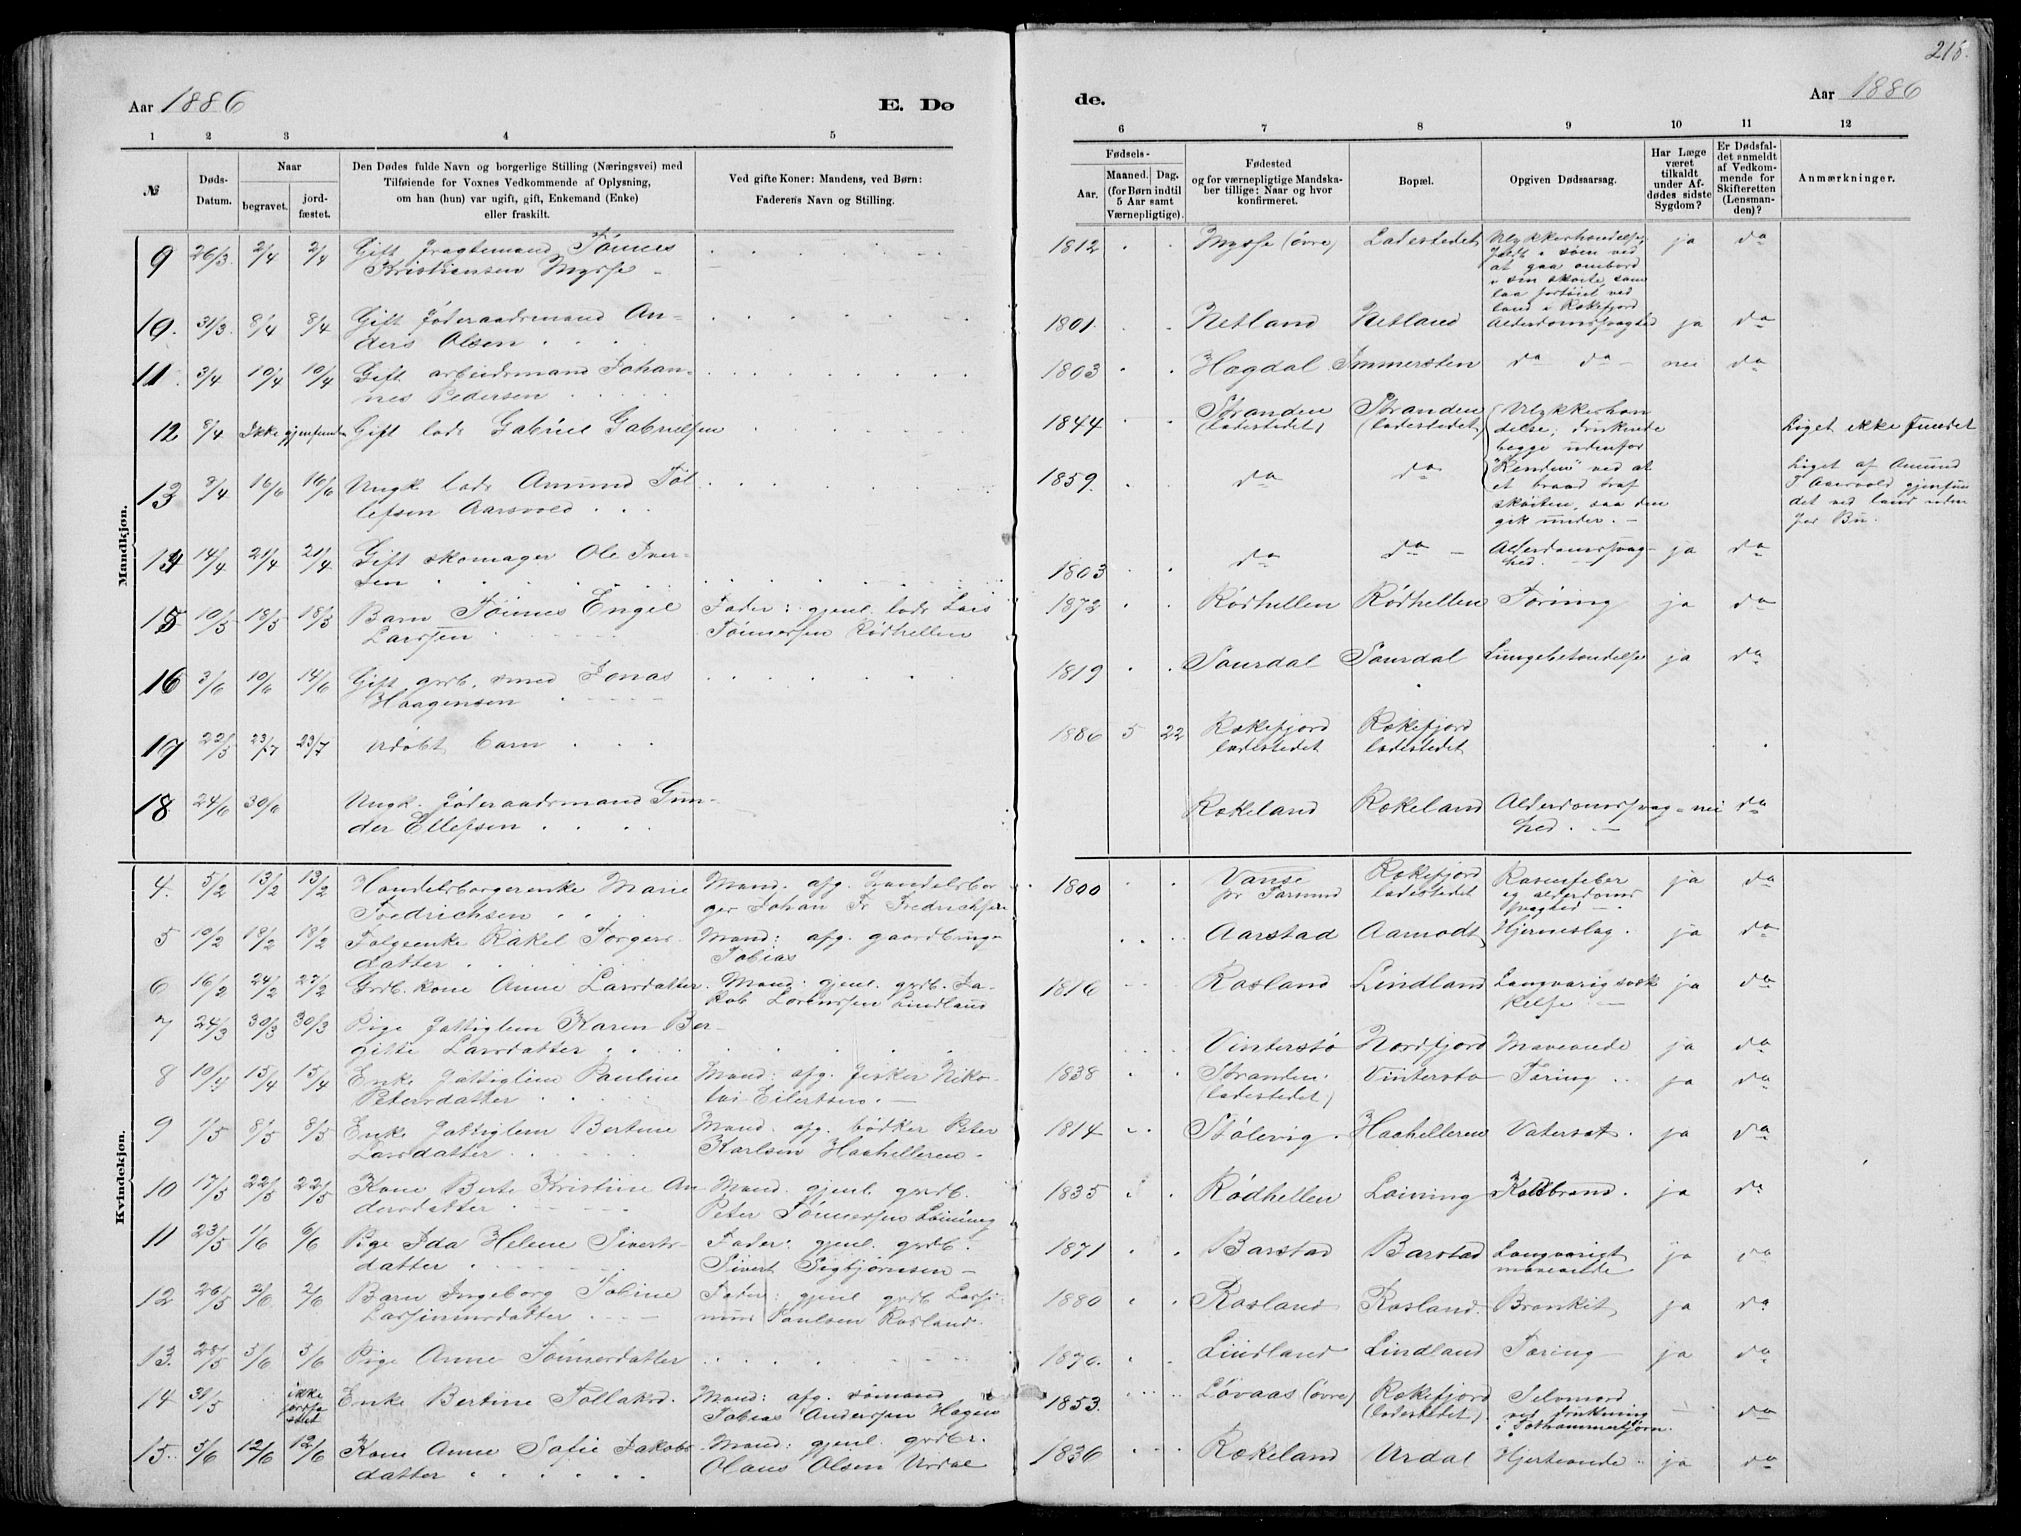 218.
Aar 1886 E. Dø
de. Aar 1886
1 2 3 4 5
6 7 8 9 10 11 12
№
Døds-
Datum.
Naar
begravet.
jord-
fæstet.
Den Dødes fulde Navn og borgerlige Stilling (Næringsvei) med
Tilføiende for Voxnes Vedkommende af Oplysning,
om han (hun) var ugift, gift, Enkemand (Enke)
eller fraskilt.
Ved gifte Koner: Mandens, ved Børn:
Faderens Navn og Stilling.
Fødsels-
Aar.
Maaned. Dag.
(for Børn indtil
5 Aar samt
Værnepligtige).
Fødested
og for værnepligtige Mandska-
ber tillige: Naar og hvor
konfirmeret.
Bopæl.
Opgiven Dødsaarsag.
Har Læge
været
tilkaldt
under Af-
dødes sidste
Sygdom?
Er Dødsfal-
det anmeldt
af Vedkom-
mende for
Skifteretten
(Lensman-
den)?
Anmærkninger.
Mandkjøn.
9 26/3 2/4 2/4 Gift fragtemand Tönnes
Kristiansen Mysse
1812 Mysse (övre) Ladestedet Ulykkeshændelse,
faldt i söen ved
at gaa ombord
i sin skøite, som
laa fortöiet ved
land i Rekefjord
ja do
10. 31/3 8/4 8/4 Gift föderaadsmand An-
ders Olsen
1801. Netland Netland Alderdomssvaghed ja do
11. 3/4 10/4 10/4 Gift arbeidsmand Johan-
nes Pedersen
1803 Hægdal Immersten do do nei do
12 8/4 Ikke gjenfunden Gift lods Gabriel Gabrielsen
1844 Stranden
(ladestedet)
Stranden
(ladestedet)
Ulykkeshæn
delse; druknede
begge udenfor
"Kenden" ved at
et braad traf
sköiten, saa den
gik under.
Liget ikke fundet
13 8/4 16/6 16/6 Ungk. lods Amund Tol
lefsen Aarsvold
1859. do do
Liget af Amund
T Aarsvold gjenfun
det ved land uden
for Bu.
14 14/4 21/4 21/4 Gift skomager Ole Iver-
sen
1803 do do Alderdomssvag-
hed. ja do
15 10/5 18/5 18/5 Barn Tönnes Engel
Larssen
Fader: gjenl. lods Lars
Tönnessen Rödhellen
1872 Rödhellen Rödhellen Tæring ja do
16 3/6 10/6 14/6 Gift grdb. smed Jonas
Haagensen
1819 Saurdal Saurdal Lungebetændelse ja do
17 22/5 23/7 23/7 udöbt barn
1886 5 22 Rekefjord
ladestedet
Rekefjord
ladestedet
18 24/6 30/6 Ungk. föderaadsmand Gun-
der Ellefsen
Rekeland Rekeland Alderdomssvag-
hed. nei do
Kvindekjøn.
4. 5/2 13/2 13/2 Handelsborgerenke Marie
Fredrichsen
Mand: afg. handelsbor
ger Johan Fr Fredrichsen
1800 Vanse
pr Farsund
Rekefjord
ladestedet
Rosenfeber
og alderdoms
svaghed ja do
5 10/2 18/2 18/2 Folgeenke Rakel Torgers-
datter
Mand: afg. gaardbruger
Tobias
Aarstad Aamodt Hjerneslag. ja do
6 16/2 24/2 27/2 Grdb. kone Anne Larsdatter.
Mand: gjenl. grdb. Ja-
kob Lorentsen Lindland
1816 Rosland Lindland Langvarig svæk
kelse ja do
7 24/3 30/3 30/3 Pige fattiglem Karen Ber-
gitte Larsdatter
Vinterstö Nordfjord Maveonde ja do
8 10/4 15/4 15/4 Enke fattiglem Pauline
Petersdatter
Mand: afg. fisker Niko-
lai Eilertsen.
1838 Stranden
(ladestedet)
Vinterstö Tæring ja do
9 1/5 8/5 8/5 Enke fattiglem Bertine
Larsdatter
Mand: afg. bödker Peter
Karlsen Haahelleren.
1814 Stölevig. Haahelleren Vatersot. ja do
10 17/5 22/5 22/5 Kone Berte Kristine An
dersdatter
Mand: gjenl. grdb.
Peter Tönnessen Löining
1835 Rödhellen Löining Koldbrand. ja do
11 23/5 1/6 6/6 Pige Ida Helene Siverts-
datter
Fader: gjenl. grdb.
Sivert Sigbjörnsen
1871 Barstad Barstad Langvarigt
maveonde ja do
12 26/5 2/6 2/6 Barn Ingeborg Tobine
Larsinusdatter
Fader: gjenl grdb Larsi-
nus Paulsen Rosland.
1880 Rosland Rosland. Bronkit ja do
13. 28/5 3/6 3/6 Pige Anne Tönnesdatter
1870. Lindland Lindland Tæring ja do
14 31/5 ikke
jordfæ
stet Enke Bertine Tollaksd.
Mand: afg. sömand
Tobias Anderssen Hagen
1853. Lövaas (övre) Rekefjord
(ladestedet).
Selvmord
ved drukning
do
15. 5/6 12/6 12/6 Kone Anne Sofie Jakobs-
datter
Mand: gjenl. grdbr.
Olaus Olsen Urdal
1836 Rekeland Urdal Hjerteonde ja do